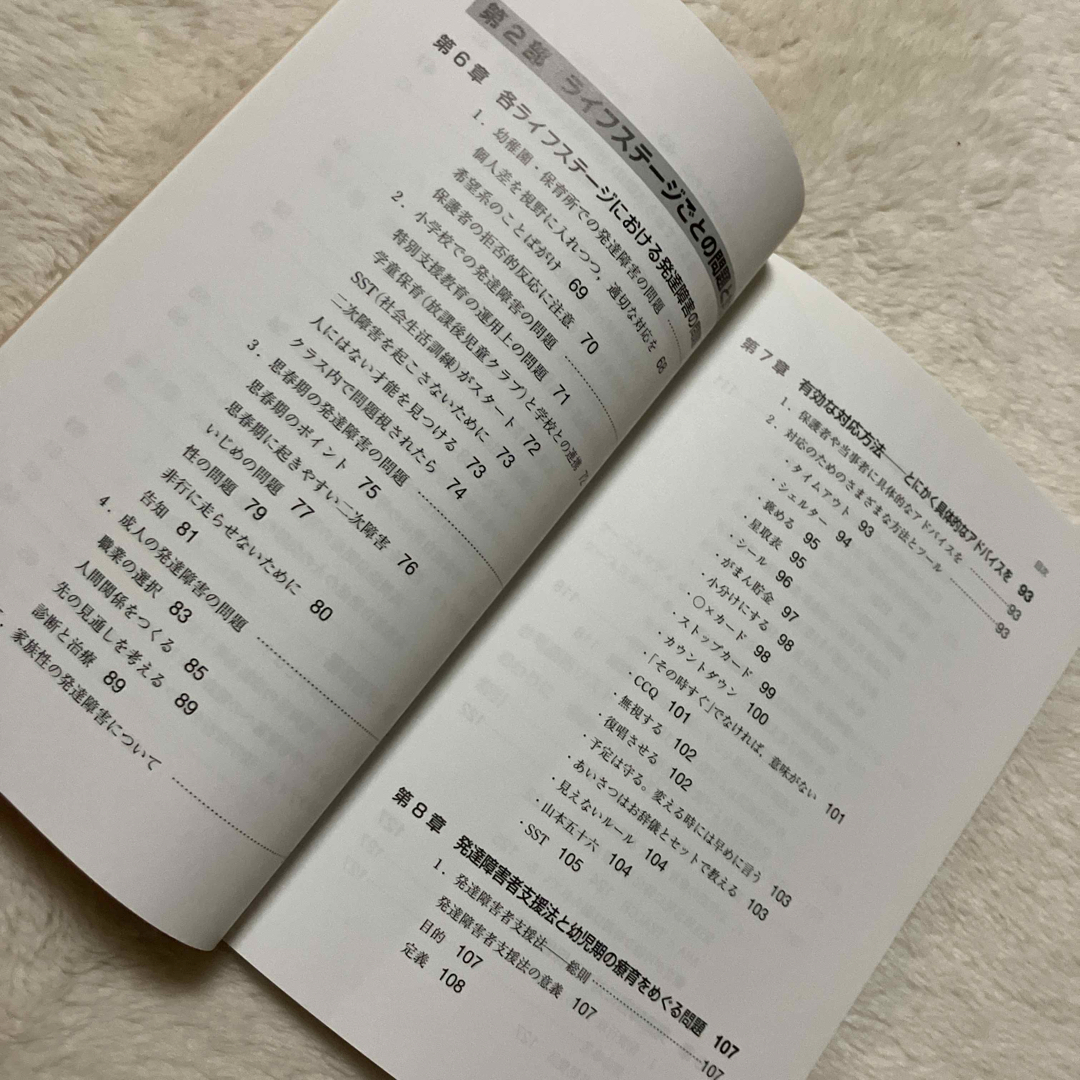 第2部 ライフステージごとの問題と
第6章 各ライフステージにおける発達障害の問
1. 幼稚園・保育所での発達障害の問題 68
個人差を視野に入れつつ，適切な対応を
希望系のことばがけ 69
保護者の拒否的反応に注意 70
2. 小学校での発達障害の問題
特別支援教育の運用上の問題 71
学童保育(放課後児童クラブ)と学校との連携 72
SST(社会生活訓練)がスタート 72
二次障害を起こさないために 73
人にはない才能を見つける 73
クラス内で問題視されたら 74
3. 思春期の発達障害の問題
思春期のポイント 75
思春期に起きやすい二次障害 76
いじめの問題 77
性の問題 79
非行に走らせないために 80
告知 81
4. 成人の発達障害の問題
職業の選択 83
人間関係をつくる 85
先の見通しを考える 89
診断と治療 89
家族性の発達障害について
目次
第7章 有効な対応方法――とにかく具体的なアドバイスを 93
1. 保護者や当事者に具体的なアドバイスを 93
2. 対応のためのさまざまな方法とツール 93
・タイムアウト 93
・シェルター 94
・褒める 95
・星取表 95
・シール 96
・がまん貯金 97
・小分けにする 98
・○×カード 98
・ストップカード 99
・カウントダウン 100
・「その時すぐ」でなければ，意味がない 101
・CCQ 101
・無視する 102
・復唱させる 102
・予定は守る。変える時には早めに言う 103
・あいさつはお辞儀とセットで教える 103
・見えないルール 104
・山本五十六 104
・SST 105
第8章 発達障害者支援法と幼児期の療育をめぐる問題 107
1. 発達障害者支援法――総則 107
発達障害者支援法の意義 107
目的 107
定義 108